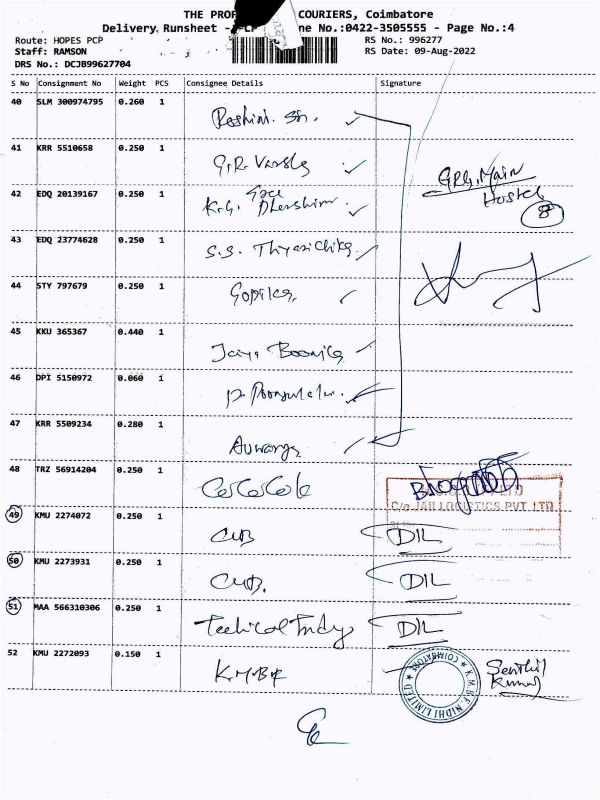 THE PROF COURIERS, Coimbatore
Delivery Runsheet - ne No.:0422-3505555 - Page No.:4
Route: HOPES PCP RS No.: 996277
Staff: RAMSON RS Date: 09-Aug-2022
DRS No.: DCJB99627704
S No Consignment No Weight PCS Consignee Details Signature
40 SLM 300974795 0.260 1 Reshini. Sn.
41 KRR 5510658 0.250 1 G.R. Varsha
GRG. Main
Hostel
8
42 EDQ 20139167 0.250 1 K.G. Dharshini
43 EDQ 23774628 0.250 1 S.S.
44 STY 797679 0.250 1 Gopika
45 KKU 365367 0.440 1 Jaya
46 DPI 5150972 0.060 1 P.
47 KRR 5509234 0.280 1
48 TRZ 56914204 0.250 1 CoCoCole
C/o JAI LOGISTICS PVT LTD
49 KMU 2274072 0.250 1 CUB DIL
50 KMU 2273931 0.250 1 CUB. DIL
51 MAA 566310306 0.250 1 DIL
52 KMU 2272093 0.150 1 K.M.B.F Senthil
Kumar
K.M.B.F. NIDHI LIMITED COIMBATORE